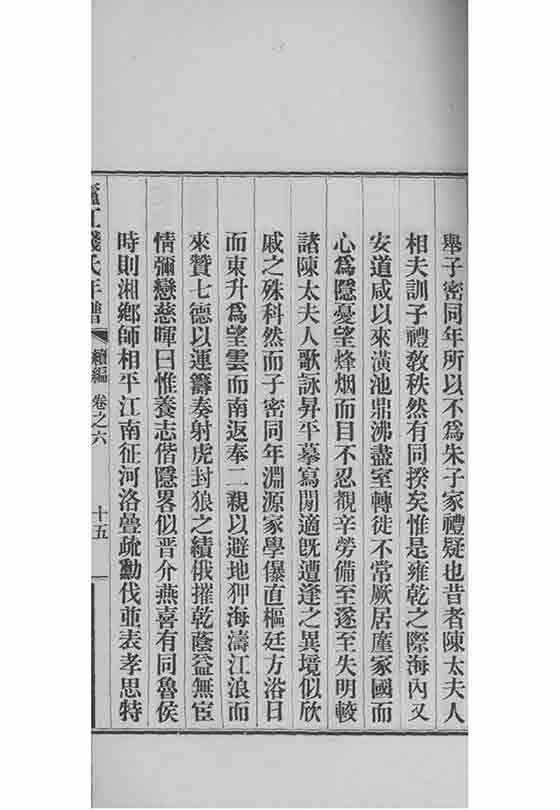 舉子密同年所以不爲朱子家禮疑也昔者陳太夫人
相夫訓子禮敎秩然有同揆矣惟是雍乾之際海內乂
安道咸以來潢池鼎沸盡室轉徙不常厥居廑家國而
心爲隱憂望烽烟而目不忍覩辛勞備至遂至失明較
諸陳太夫人歌詠昇平摹寫閒適旣遭逢之異境似欣
戚之殊科然而子密同年淵源家學儤直樞廷方浴日
而東升爲望雲而南返奉二親以避地狎海濤江浪而
來贊七德以運籌奏射虎封狼之績俄摧乾蔭益無宦
情彌戀慈暉曰惟養志偕隱畧似晋介燕喜有同魯侯
時則湘鄕師相平江南征河洛疊疏勷伐並表孝思特
廬江錢氏年譜 續編 卷之六 十五